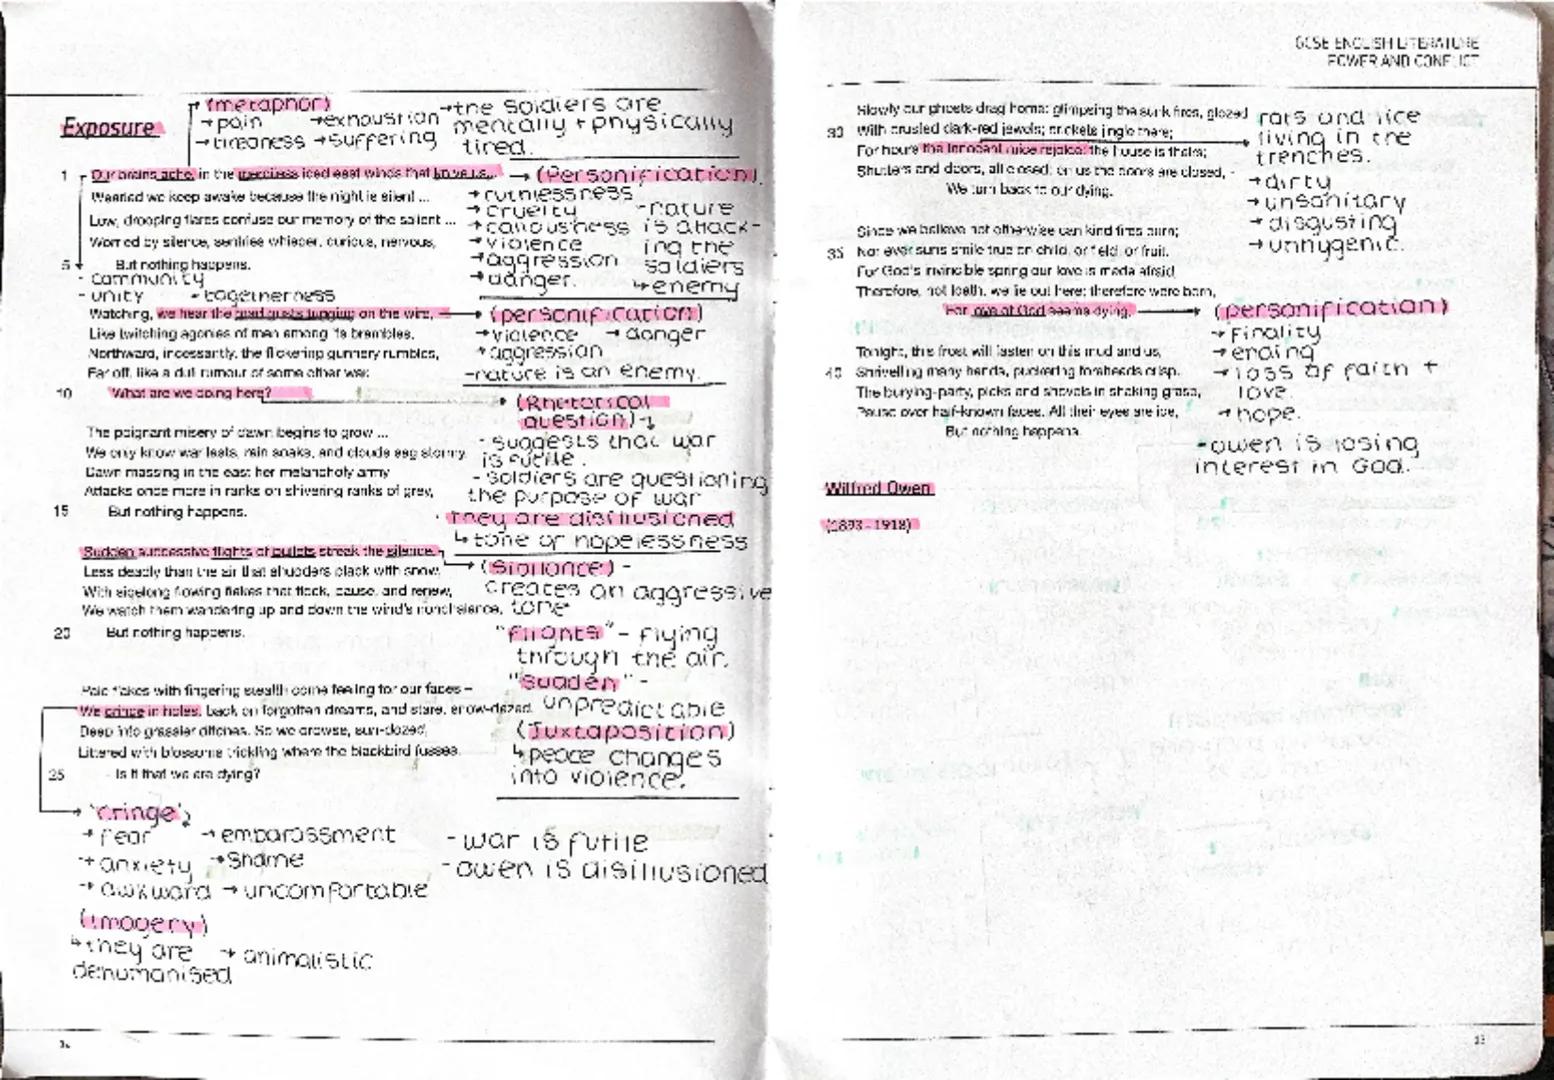 Exposure
(metaphor)
→ pain →exhaustion
→ tiredness →suffering
→the soldiers are
mentally + physically
tired.
1 Our brains ache, in the merciless iced east winds that knive us...
Wearied we keep awake because the night is silent ...
Low, drooping flares confuse our memory of the salient ...
Worried by silence, sentries whisper, curious, nervous,
5 But nothing happens.
→ (Personification)
→ ruthlessness
→ cruelty
→ callousness
→ violence
→aggression
→ danger.
-nature
is attack-
ing the
soldiers
↳enemy
- community
- unity - togetherness
Watching, we hear the mad gusts tugging on the wire,
Like twitching agonies of men among its brambles.
Northward, incessantly, the flickering gunnery rumbles,
Far off, like a dull rumour of some other war.
10 What are we doing here?
(personification)
→violence → danger
→ aggression
-nature is an enemy.
(Rhetorical
question)↴
- suggests that war
is futile.
- soldiers are questioning
the purpose of war
they are disillusioned
↳ tone of hopelessness
The poignant misery of dawn begins to grow ...
We only know war lasts, rain soaks, and clouds sag stormy.
Dawn massing in the east her melancholy army
Attacks once more in ranks on shivering ranks of grey,
15 But nothing happens.
Sudden successive flights of bullets streak the silence.
Less deadly than the air that shudders black with snow,
With sidelong flowing flakes that flock, pause, and renew,
We watch them wandering up and down the wind's nonchalance,
20 But nothing happens.
(Sibilance) -
creates an aggressive
tone
"flights" - flying
through the air.
"Sudden" -
unpredictable
(Juxtaposition)
↳peace changes
into violence.
Pale flakes with fingering stealth come feeling for our faces –
We cringe in holes, back on forgotten dreams, and stare, snow-dazed,
Deep into grassier ditches. So we drowse, sun-dozed,
Littered with blossoms trickling where the blackbird fusses.
25 - Is it that we are dying?
'cringe'
→ fear → embarassment
→ anxiety →shame
→ awkward → uncomfortable
(imagery)
↳they are → animalistic
dehumanised
- war is futile
-owen is disillusioned
GCSE ENGLISH LITERATURE
POWER AND CONFLICT
Slowly our ghosts drag home: glimpsing the sunk fires, glozed
30 With crusted dark-red jewels; crickets jingle there;
For hours the innocent mice rejoice: the house is theirs;
Shutters and doors, all closed: on us the doors are closed, -
We turn back to our dying.
rats and lice
living in the
trenches.
→dirty
→unsanitary
→ disgusting
→ unhygenic.
Since we believe not otherwise can kind fires burn;
35 Nor ever suns smile true on child, or field, or fruit.
For God's invincible spring our love is made afraid;
Therefore, not loath, we lie out here; therefore were born,
For love of God seems dying.
(personification)
→ Finality
→ ending
→ loss of faith +
love.
→ hope.
-owen is losing
interest in God.
Tonight, this frost will fasten on this mud and us,
40 Shrivelling many hands, puckering foreheads crisp.
The burying-party, picks and shovels in shaking grasp,
Pause over half-known faces. All their eyes are ice,
But nothing happens.
Wilfred Owen
(1893 - 1918)